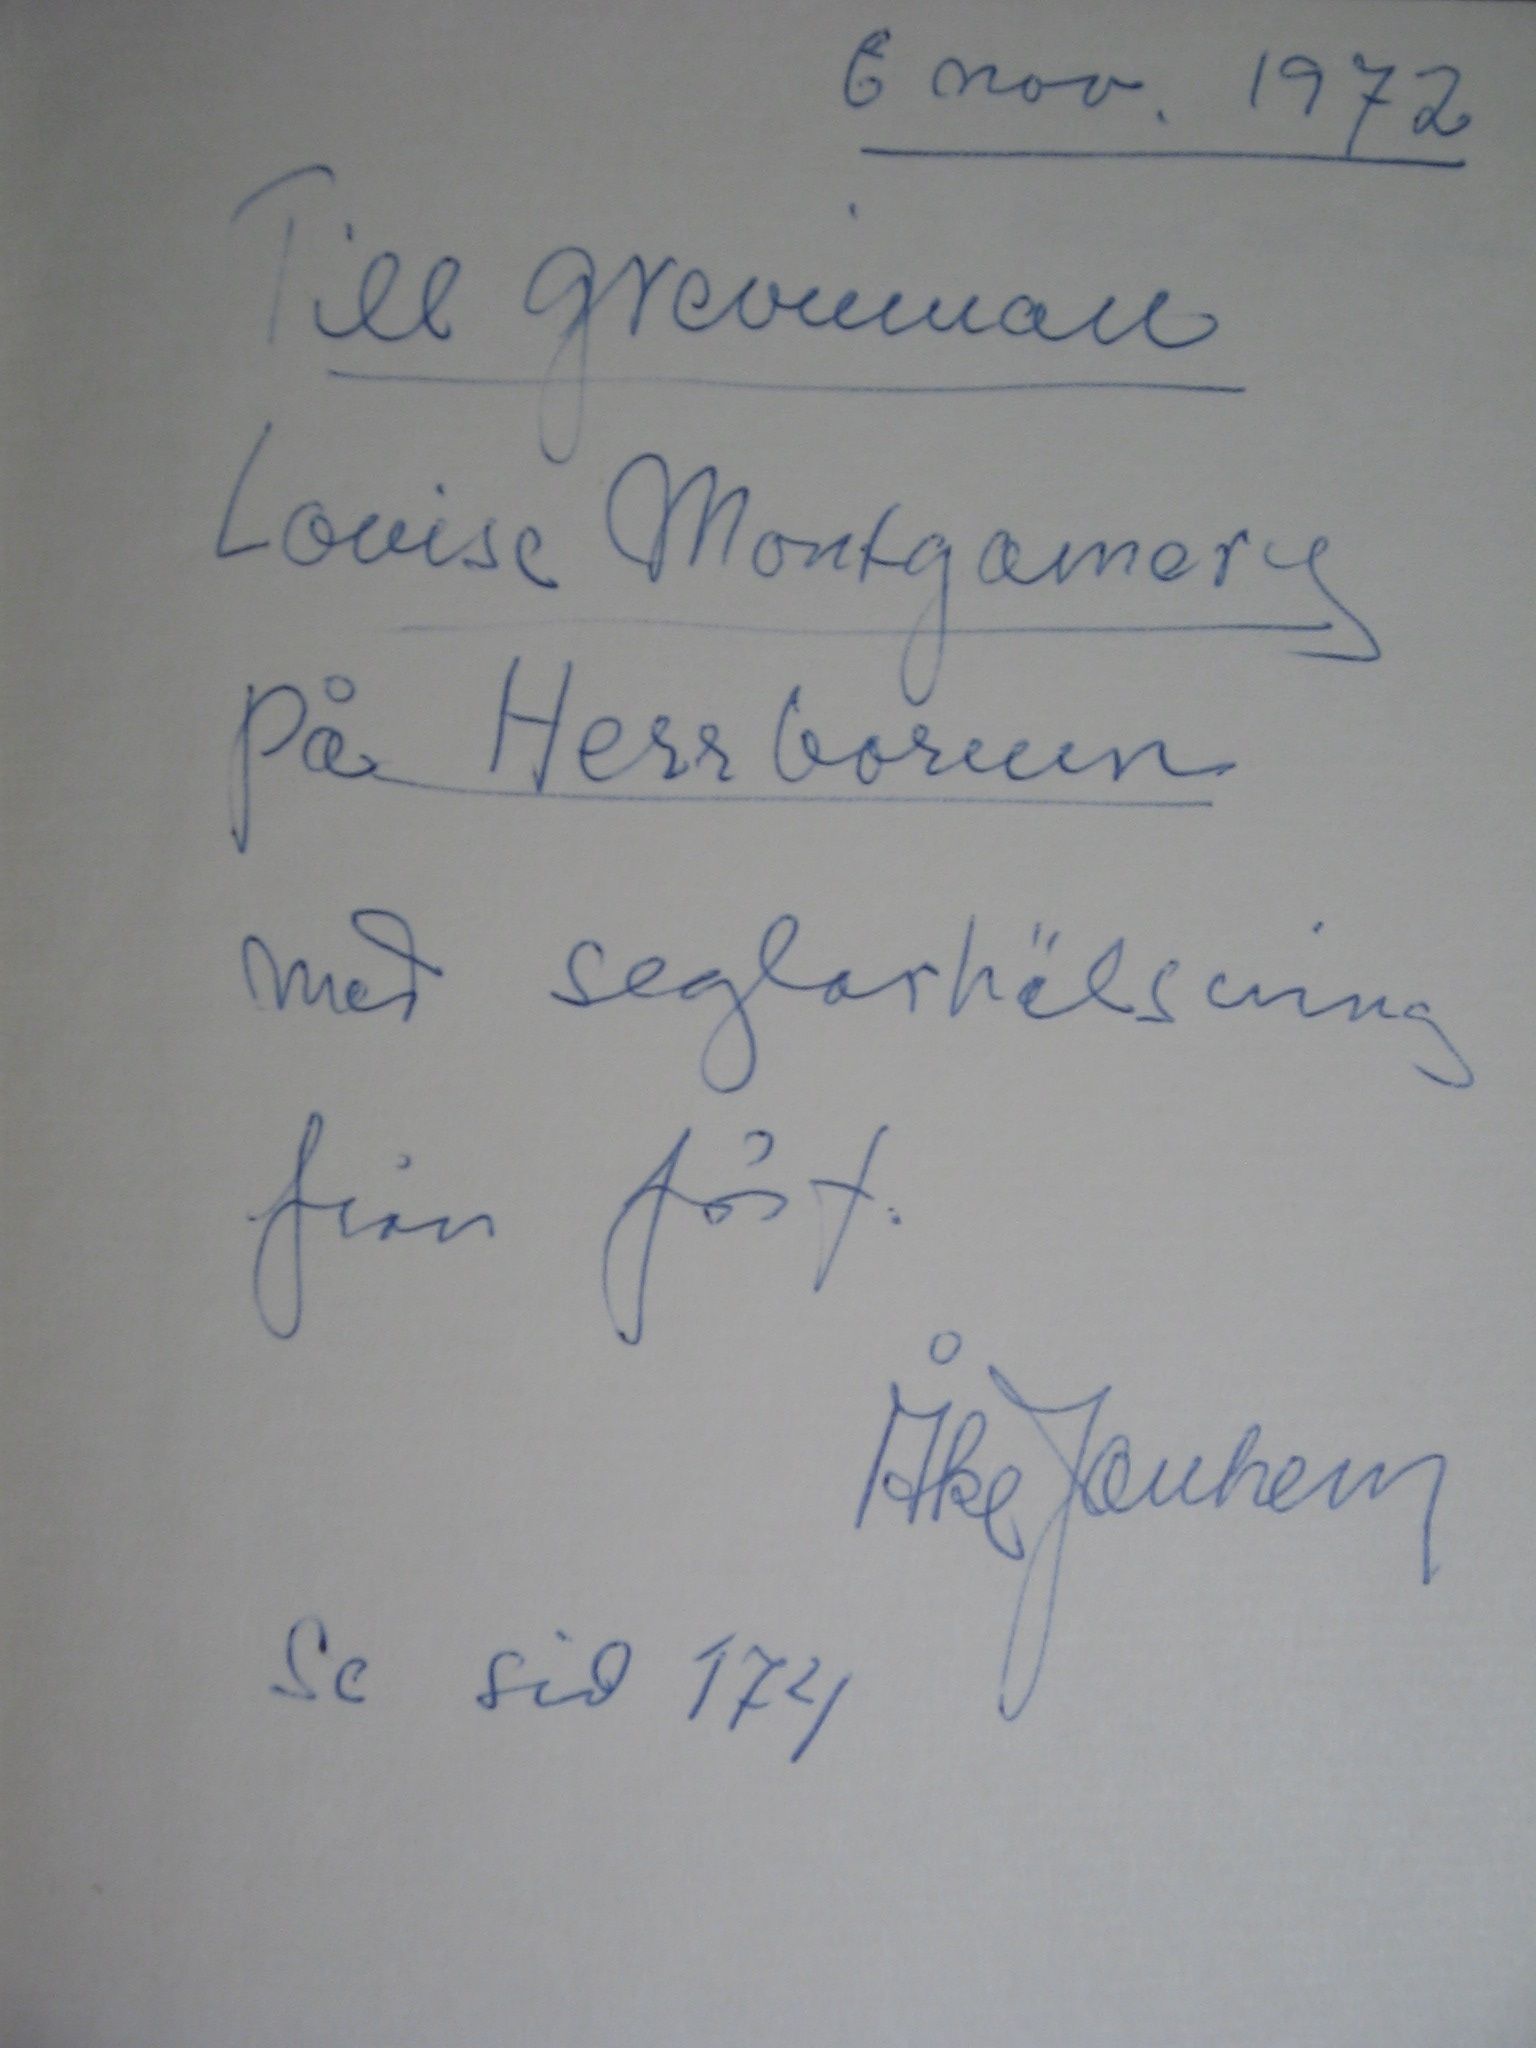 6 nov. 1972
Till grevinnan
Louise Montgomery
på Herrborum
med seglarhälsning
från förf.
Åke Janhem
Se sid 174